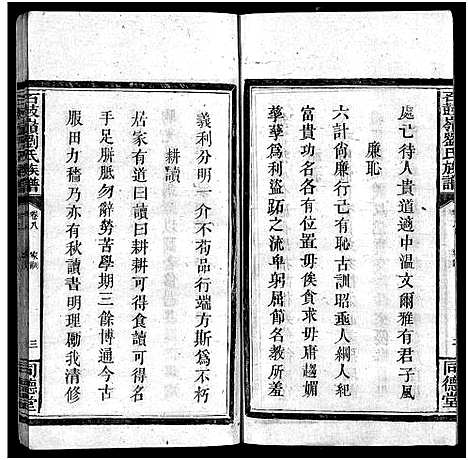 石鼓嶺劉氏族譜
卷八
家訓
三
同德堂
處己待人貴道適中溫文爾雅有君子風
廉恥
六計尙廉行己有恥古訓昭垂人綱人紀
富貴功名各有位置毋俟貪求毋庸趨媚
孳孳爲利盜跖之流卑躬屈節名教所羞
義利分明一介不苟品行端方斯爲不朽
耕讀
居家有道曰讀曰耕耕可得食讀可得名
手足胼胝勿辭勞苦學期三餘博通今古
服田力穡乃亦有秋讀書明理勵我清修
石鼓嶺劉氏族譜
卷八
家訓
三
同德堂